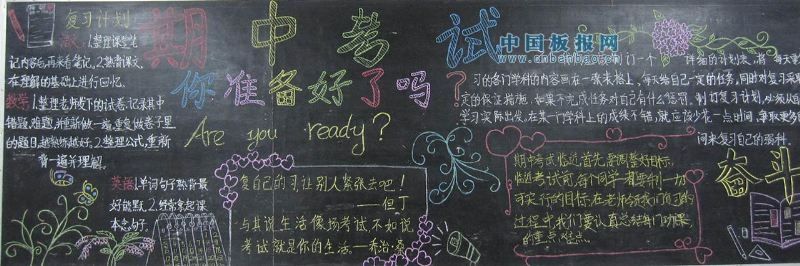 复习计划
语文:1.整理课堂笔
记内容后,再来看笔记,2.熟读课文,
在理解的基础上进行回忆.
数学1.整理老师发下的试卷.记录其中
错题,难题,并重新做一遍.重复做卷子里
的题目,越熟练越好.2.整理公式,重新
背一遍并理解.
英语1.单词句子熟背最
好能默,2.
期中考试
你准备好了吗?
Are you ready?
中国板报网
www.cnbanbao.com
复自己的习,让别人紧张去吧!
——但丁
与其说生活像场考试,不如说
考试就是你的生活.——乔治·桑
们一个详细的计划表,将每天要
习的各门学科的内容画在一张表格上,每天给自己一定的任务,同时对复习采
定的保证措施.如果不完成任务对自己有什么惩罚.制订复习计划,必须从
学习实际出发,在某一个学科上的成绩不错,就应该少花一点时间,争取更多
间来复习自己的弱科.
期中考试临近,首先要调整好目标.
临近考试前,每个同学一定要制一切
可实行的目标.在老师带领我们复习的
过程中,我们要认真总结每门功课
的重点,难点.
奋斗